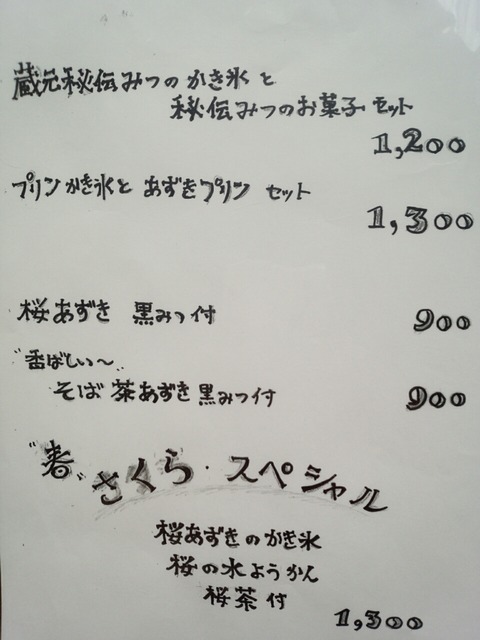 蔵元秘伝みつのかき氷と
秘伝みつのお菓子セット
1,200
プリンかき氷と あずきプリン セット
1,300
桜あずき 黒みつ付 900
"香ばしい〜"
そば茶あずき黒みつ付 900
"春"さくら・スペシャル
桜あずきのかき氷
桜の水ようかん
桜茶付
1,300